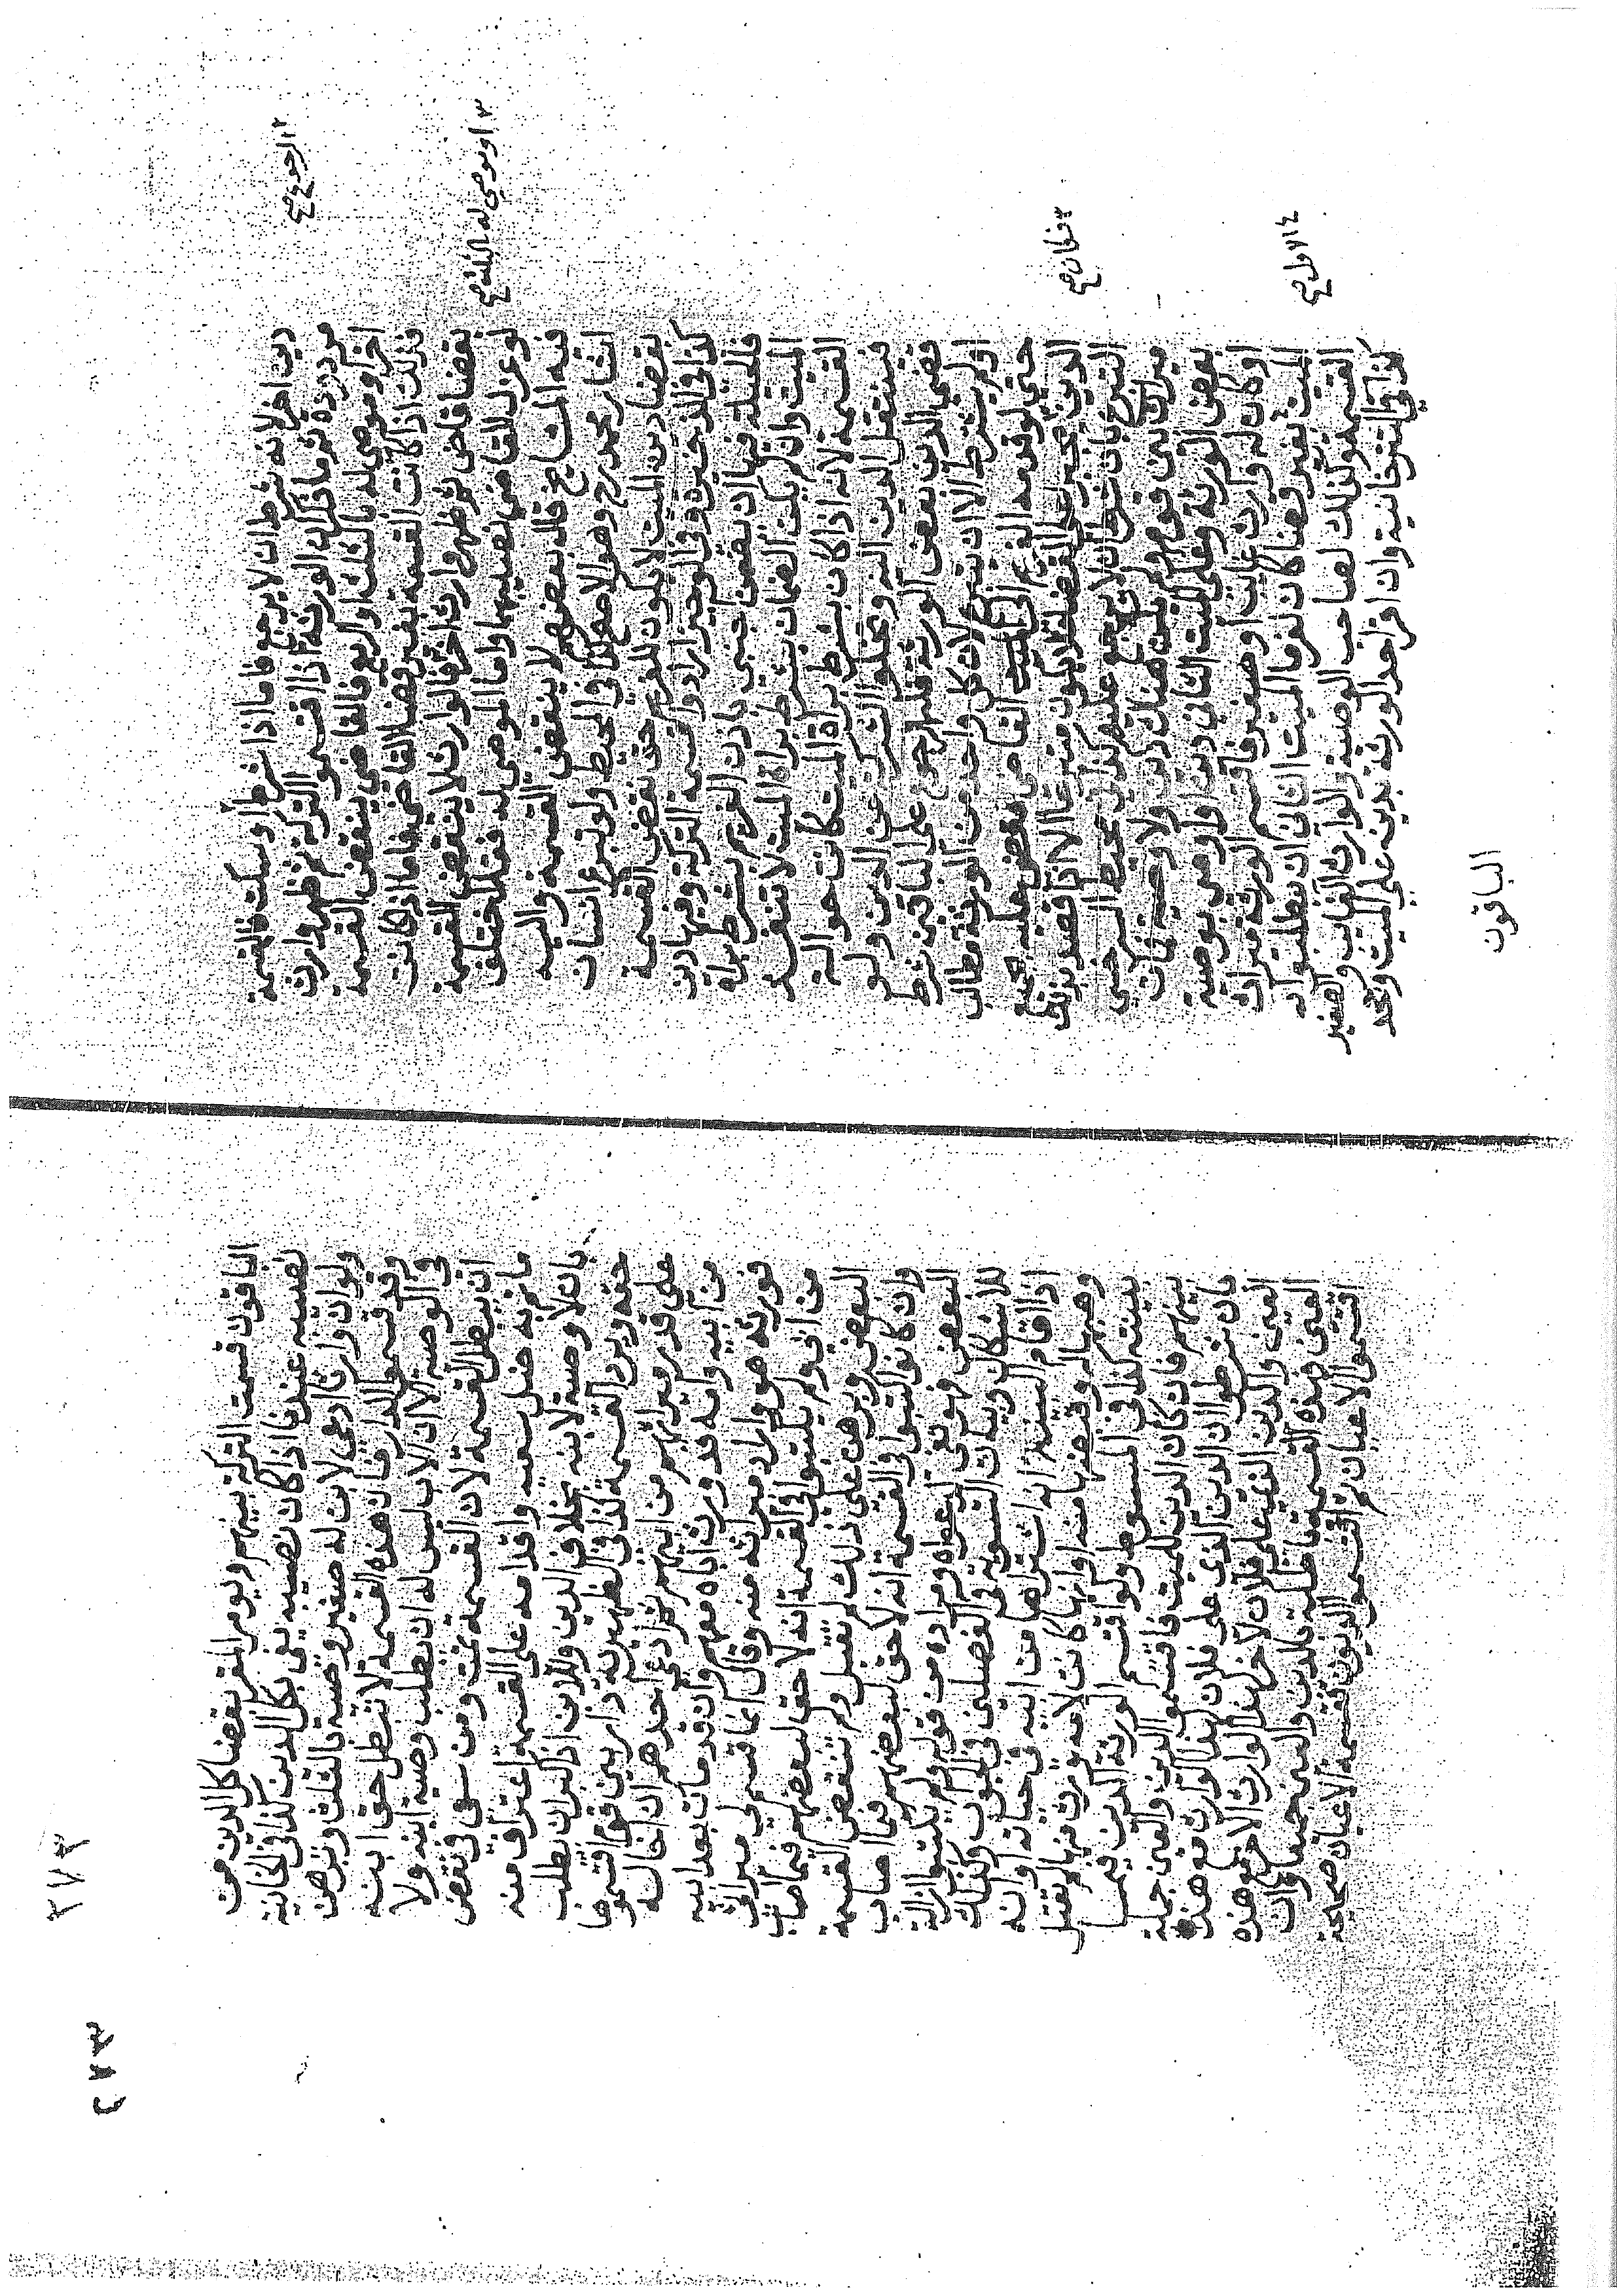 دين اخر لانه شرط ان لا يرجعوا فاما اذا شرط او سكت فالقسمة
مردودة ثم ما ذكر ان الورثة اذا قسموا التركة ثم ظهر وارث
٢ ارجوع صح
اخر او موصى له بالثلث او الربع فالقاضي ينقض القسمة
فذلك اذا كانت القسمة بغير قضا القاضي فاما اذا كانت
بقضا قاض ثم ظهر وارث اخر فالوارث لا ينقض القسمة
٣ او موصى له الثلث صح
لو عزل القاضي نصيبهما واما الموصى له فقد اختلف
فيه المشايخ قال بعضهم لا ينقض القسمة واليه
اشار محمد رح وهو الاصح كذا في المحيط ولو تبرع انسان
بقضا دين الميت لا يكون للغريم حق نقض القسمة
كذا في الذخيرة وفي الوجيز ارادوا قسمة التركة وفيها دين
فالحيلة فيها ان يضمن اجنبي باذن الغريم بشرط براة
الميت وان لم يكن الضمان بشرط براة الميت لا تنفذ
القسمة لانه اذا كان بشرط براة الميت كانت حوالة
فينتقل الدين اليه وتخلو التركة عن الدين ولو
قضى الدين بعض الورثة فله الرجوع على الباقين شرط
او لم يشترط الا ان يتبرع لان كل واحد من الورثة مطالب
حتى لو قدمه الغريم الى القاضي فيقضي عليه بجميع
الدين يجبر على القضا فلا يكون متبرعا الا اذا قصد بذلك
٣ فكان صح
التبرع بان شرط ان لا يرجع عليهم كذا في محيط السرخسي
ميراث بين قوم لم يكن هناك دين ولا وصية فمات
بعض الورثة وعلى الميت الثاني دين او اوصى بوصية
او كان له وارث غايب او صغير فاقتسم الورثة ميراث
الميت بغير قضا كان لغرما الميت الثاني ان يبطلوا
٤ الاول صح
القسمة وكذلك لصاحب الوصية والوارث الغايب والصغير
كذا في التترخانية وان اقر احد الورثة بدين على الميت وجحد
الباقون
٢٧٣
٢٨٣
الباقون قسمت التركة بينهم ويومر المقر بقضا كل الدين من
نصيبه عندنا اذا كان نصيبه يفي بكل الدين كذا في الخانية
ولو ان وارثا ادعى لابن له صغير وصية بالثلث وبرهن
وقد قسموا الدار فان هذه القسمة لا تبطل حق ابنه
في الوصية الا ان الاب ليس له ان يطلب وصية ابنه ولا
ان يبطل القسمة لان القسمة تمت ومن سعى في نقض
ما تم به ضل سعيه واقدامه على القسمة اعتراف منه
بان لا وصية لابنه بخلاف الدين وللابن اذا كبر ان يطلب
حقه ويرد القسمة كذا في الظهيرية دار بين قوم اقتسموها
على قدر ميراثهم من ابيهم ثم ادعى احدهم ان اخا له
من ابيه وامه قد ورث اباه معهم وانه قد مات بعد ابيه
فورثه هو واراد ميراثه منه وقال انما قسم لي ميراثي
من ابي ولم يكتبوا في القسمة انه لا حق لبعضهم فيما اصاب
البعض وبرهن على ذلك لم تقبل ولم تنتقض القسمة
وان كانوا كتبوا في القسمة انه لا حق لبعضهم فيما اصاب
البعض فهو نفى لدعواه ومراده من قوله ولم يكتبوا ازالة
للاشكال وبيان التسوية في الفصلين في الجواب وكذلك
اذا اقام البينة انه اشتراها من ابيه في حياته او انه
وهبها له وقبضها منه او انها كانت لامه ورث منها لم تقبل
بينته كذا في المبسوط ولو اقتسم الورثة الدين فيما
بينهم فان كان الدين للميت فاقتسموا الدين والعين جملة
بان شرطوا ان الدين الذي على فلان لهذا الوارث مع هذه
العين والدين الذي على فلان لاخر لهذا الوارث الاخر مع هذه
العين فهذه القسمة باطلة للدين والعين جميعا وان
اقتسموا الاعيان ثم اقتسموا الديون فقسمة الاعيان صحيحة